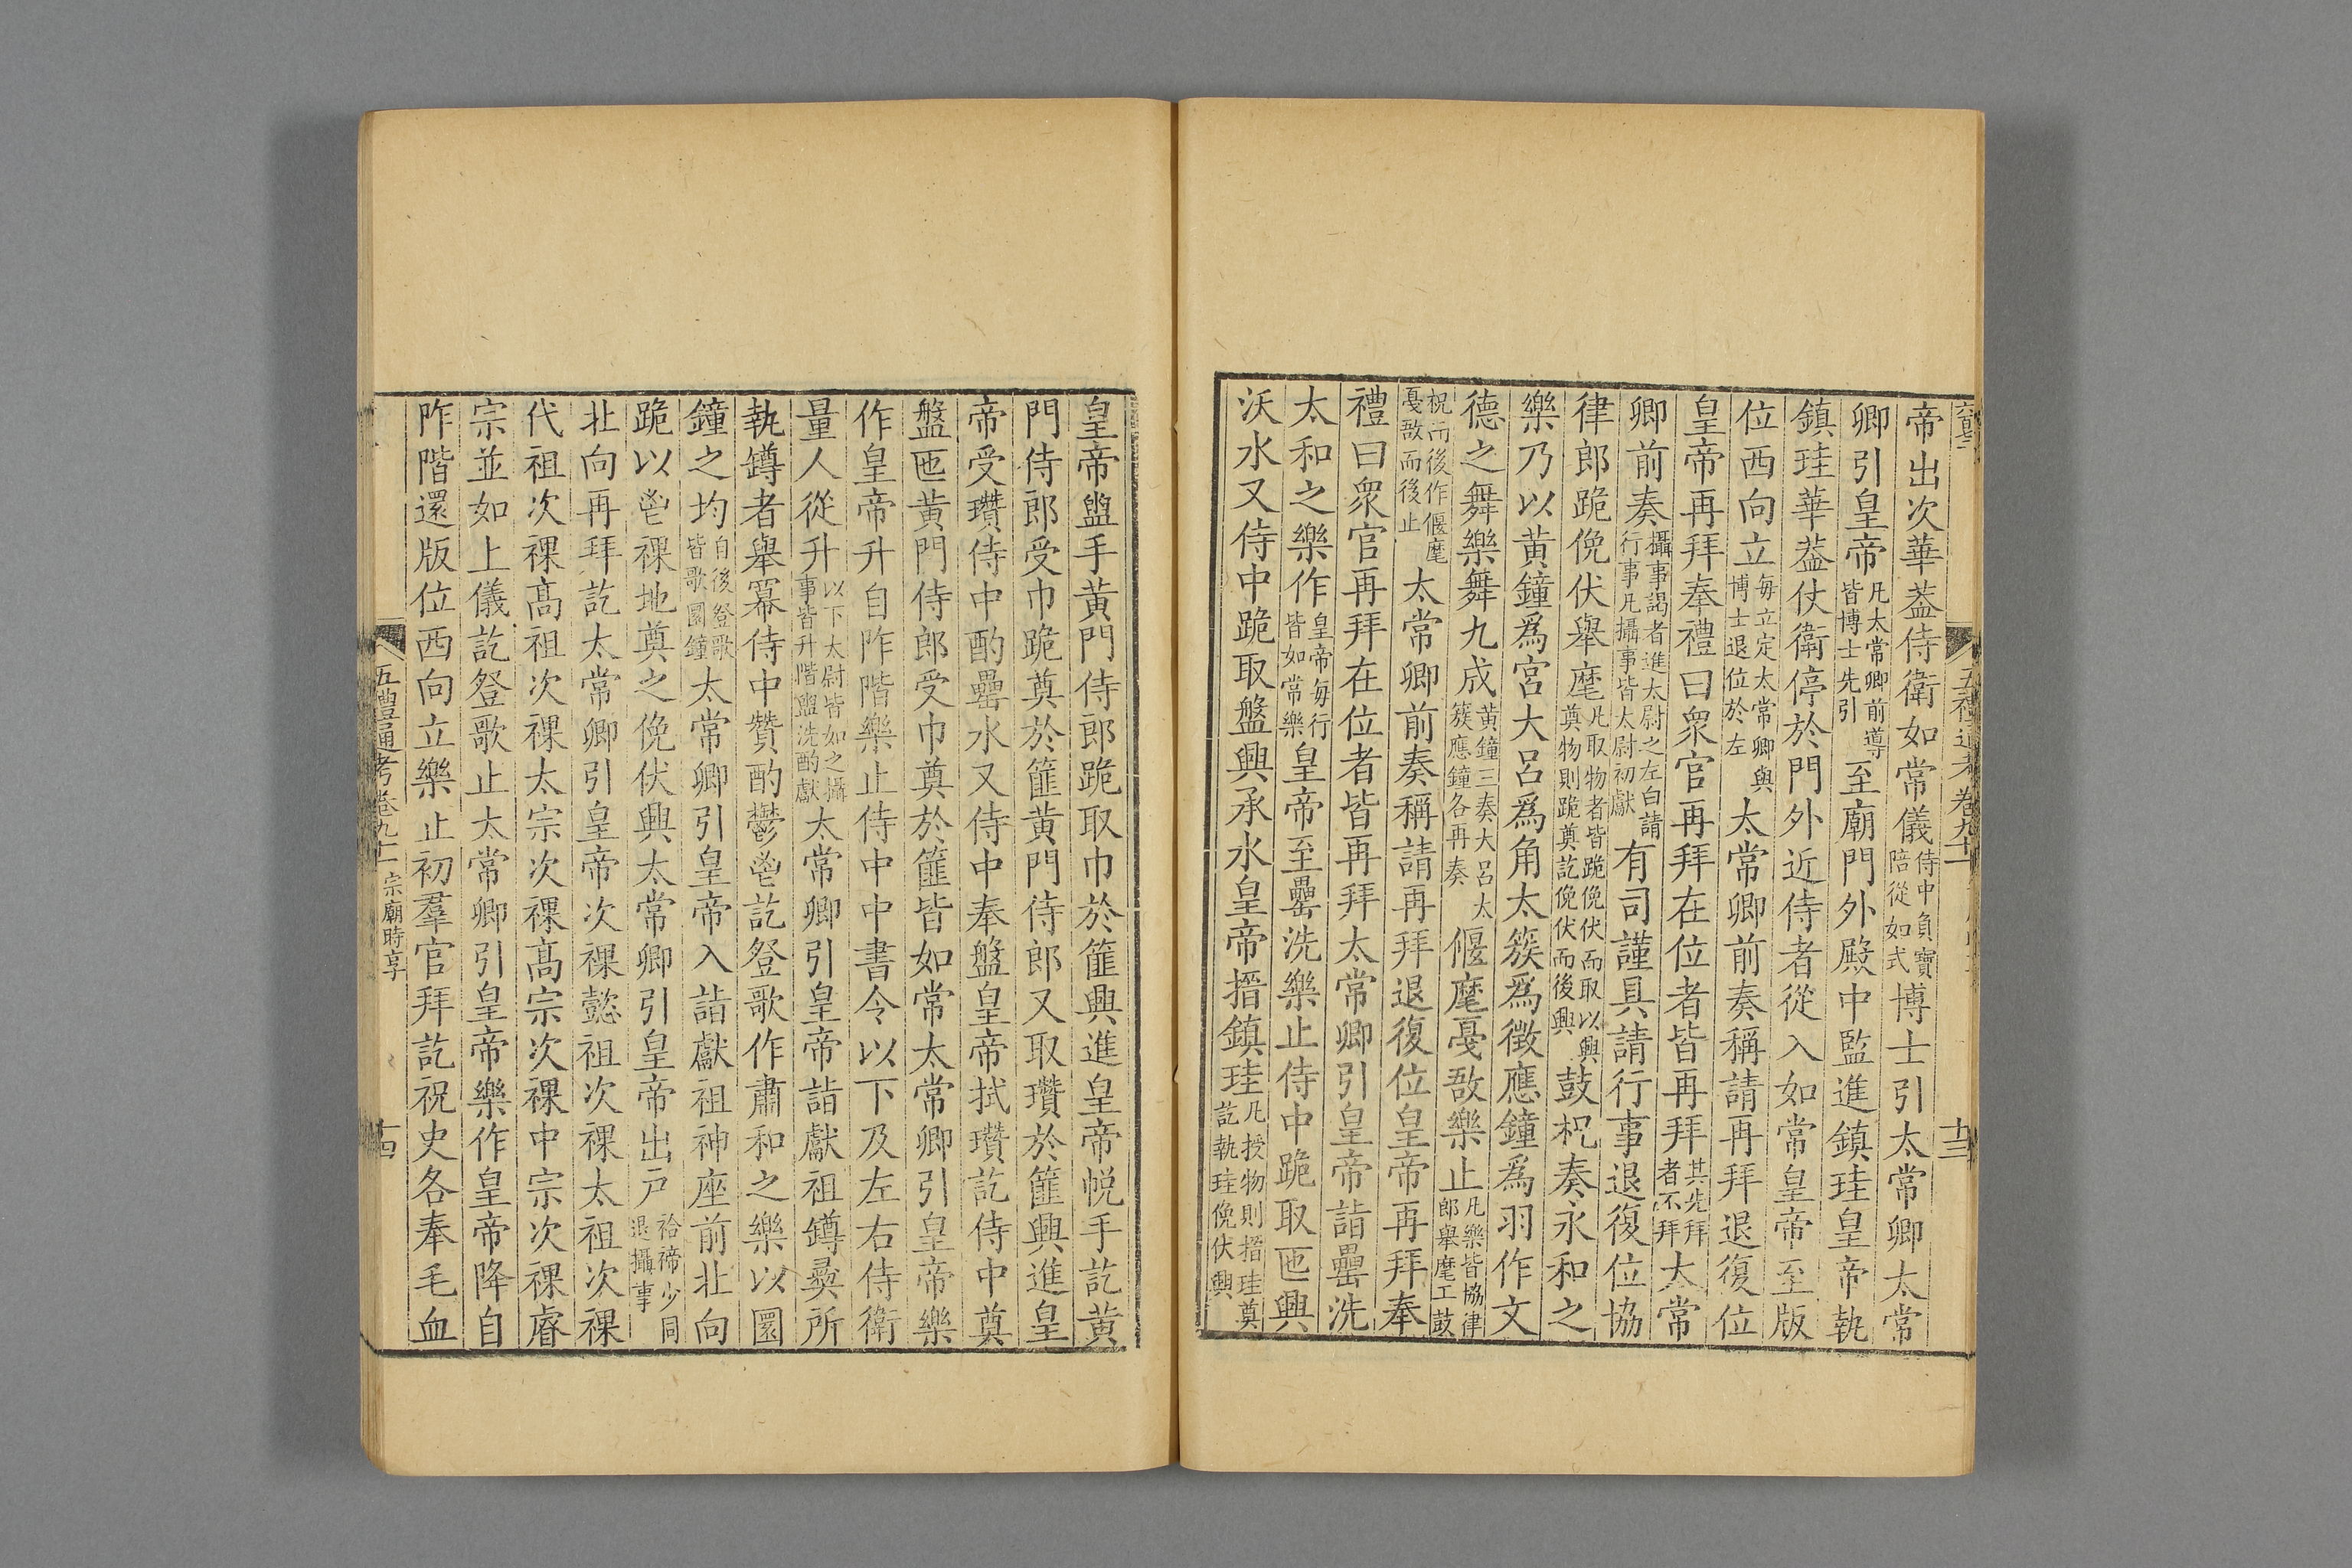 帝出次華葢侍衛如常儀侍中負寶陪從如式博士引太常卿太常
卿引皇帝凡太常卿前導皆博士先引至廟門外殿中監進鎮珪皇帝執
鎮珪華葢仗衛停於門外近侍者從入如常皇帝至版
位西向立每立定太常卿與博士退位於左太常卿前奏稱請再拜退復位
皇帝再拜奉禮曰眾官再拜在位者皆再拜其先拜者不拜太常
卿前奏攝事謁者進太尉之左白請行事凡攝事皆太尉初獻有司謹具請行事退復位協
律郎跪俛伏舉麾凡取物者皆跪俛伏而取以興奠物則跪奠訖俛伏而後興鼓柷奏永和之
樂乃以黃鐘爲宮大呂爲角太簇爲徵應鐘爲羽作文
德之舞樂舞九成黃鐘三奏大呂太簇應鐘各再奏偃麾戞敔樂止凡樂皆協律郎舉麾工鼓
柷而後作偃麾戞敔而後止太常卿前奏稱請再拜退復位皇帝再拜奉
禮曰眾官再拜在位者皆再拜太常卿引皇帝詣罍洗
太和之樂作皇帝每行皆如常樂皇帝至罍洗樂止侍中跪取匜興
沃水又侍中跪取盤興承水皇帝搢鎮珪凡授物則搢珪奠訖執珪俛伏興
皇帝盥手黃門侍郎跪取巾於篚興進皇帝帨手訖黃
門侍郎受巾跪奠於篚黃門侍郎又取瓚於篚興進皇
帝受瓚侍中酌罍水又侍中奉盤皇帝拭瓚訖侍中奠
盤匜黃門侍郎受巾奠於篚皆如常太常卿引皇帝樂
作皇帝升自阼階樂止侍中中書令以下及左右侍衛
量人從升以下太尉皆如之攝事皆升階盥洗酌獻太常卿引皇帝詣獻祖罇彝所
執罇者舉冪侍中贊酌鬱鬯訖登歌作肅和之樂以圜
鐘之均自後登歌皆歌圜鐘太常卿引皇帝入詣獻祖神座前北向
跪以鬯祼地奠之俛伏興太常卿引皇帝出戶祫禘少同退攝事
北向再拜訖太常卿引皇帝次祼懿祖次祼太祖次祼
代祖次祼高祖次祼太宗次祼高宗次祼中宗次祼睿
宗並如上儀訖登歌止太常卿引皇帝樂作皇帝降自
阼階還版位西向立樂止初羣官拜訖祝史各奉毛血
五禮通考卷九十一 宗廟時享 十四